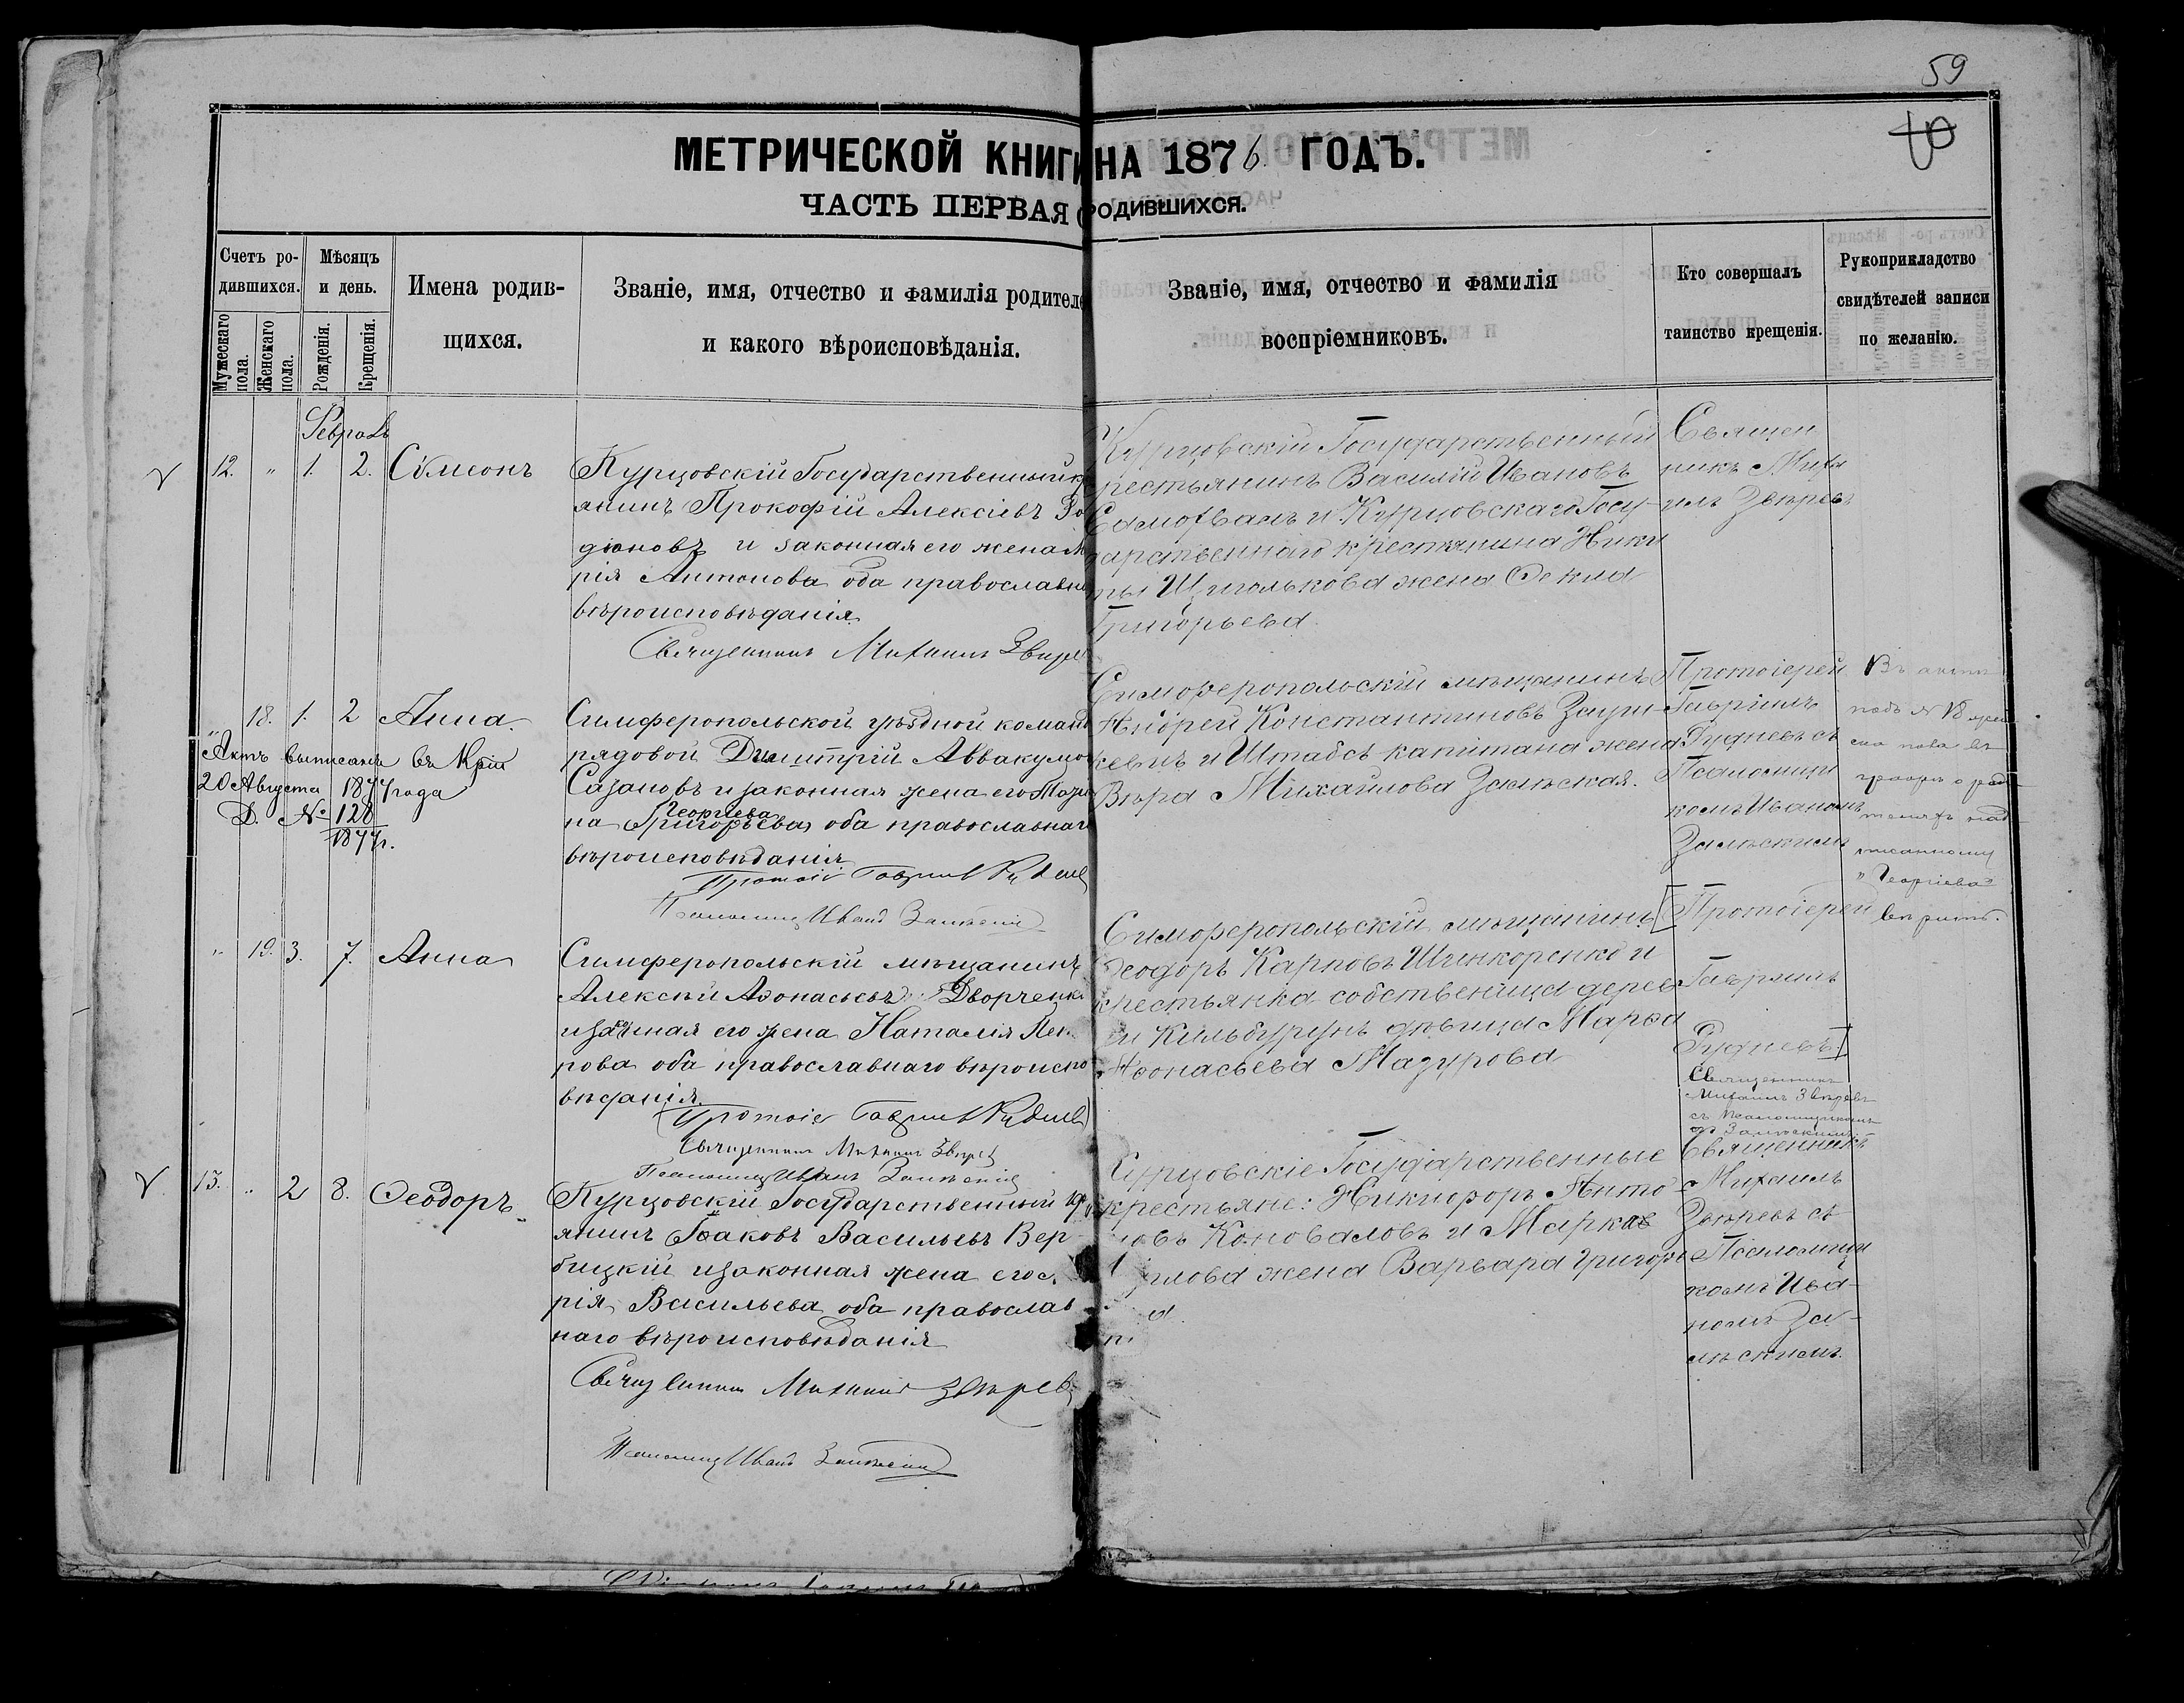 59
70
МЕТРИЧЕСКОЙ КНИГИ НА 1876 ГОДЪ.
ЧАСТЬ ПЕРВАЯ О РОДИВШИХСЯ.
Счетъ ро-
дившихся.
Мужескаго пола.
Женскаго пола.
Мѣсяцъ
и день.
Рожденія.
Крещенія.
Имена родив-
шихся.
Званіе, имя, отчество и фамилія родителе
и какого вѣроисповѣданія.
Званіе, имя, отчество и фамилія
воспріемниковъ.
Кто совершалъ
таинство крещенія.
Рукоприкладство
свидѣтелей записи
по желанію.
Февраль
12. " 1. 2. Сѵмеонъ
Курцовскій Государственный к
янинъ Прокофій Алексіевъ Ро
діоновъ и законная его жена М
рія Антонова оба православна
вѣроисповѣданія
Священникъ Михаилъ Звѣрев
Курцовскій Государственный
рестьянинъ Василій Ивановъ
и Курцовскаго Госу-
дарственнаго крестьянина Ники
ты Щиголькова жена Ѳекла
Григорьева.
Священ
никъ Миха
илъ Звѣревъ
" 18. 1. 2 Анна
Актъ выписанъ въ
20 Августа 1877 года
Д. № 128
1877г.
Симферопольской уѣздной коман
рядовой Димитрій Аввакумо
Сазановъ и законная жена его
Георгіева
на Григорьева оба православнаг
вѣроисповѣданія
Протоіе Гавріилъ Рудневъ
Псаломщ Иванъ Залѣскій
Симферопольскій мѣщанинъ
Андрей Константиновъ
кевичъ и Штабсъ капитана жена
Вѣра Михайлова Залѣская.
Протоіерей
Гавріилъ
Рудневъ съ
Псаломщи
комъ Иваномъ
Залѣскимъ
Въ актѣ
подъ № 18 жен
ска пола въ
графѣ о род
теляхъ над
писанному
"Георгіева"
вѣрить.
" 19. 3. 7. Анна
Симферопольскій мѣщанинъ
Алексій Аѳонасьевъ Дворченк
изачнная его жена Наталія
рова оба православнаго вѣроиспо
вѣданія.
(Протоіе Гавріилъ Рудневъ)
Священникъ Михаилъ Звѣрев
Псаломщ Иванъ Залѣскій
Симферопольскій мѣщанинъ
Ѳеодоръ Карповъ Шинкоренко и
крестьянка собственица дерев
ни Кильбурунъ дѣвица Марѳа
Аѳонасьева Мазурова
[Протоіерей
Гавріилъ
Рудневъ]
Священникъ
Михаилъ Звѣревъ
съ псаломщикомъ
Залѣскимъ
13. " 2 8. Ѳеодоръ
Курцовскій Государственный кр
янинъ Іаковъ Васильевъ Вер
бицкій и законная жена его
рія Васильева оба православ
наго вѣроисповѣданія
Священникъ Михаилъ Звѣрев
Псаломщ Иванъ Залѣскій
Курцовскіе Государственные
крестьяне: Никифоръ Анто
новъ Коноваловъ и Марка
лова жена Варвара Григорь
Священникъ
Михаилъ
Звѣревъ съ
Псаломщи
комъ Ива-
номъ За-
лѣскимъ.